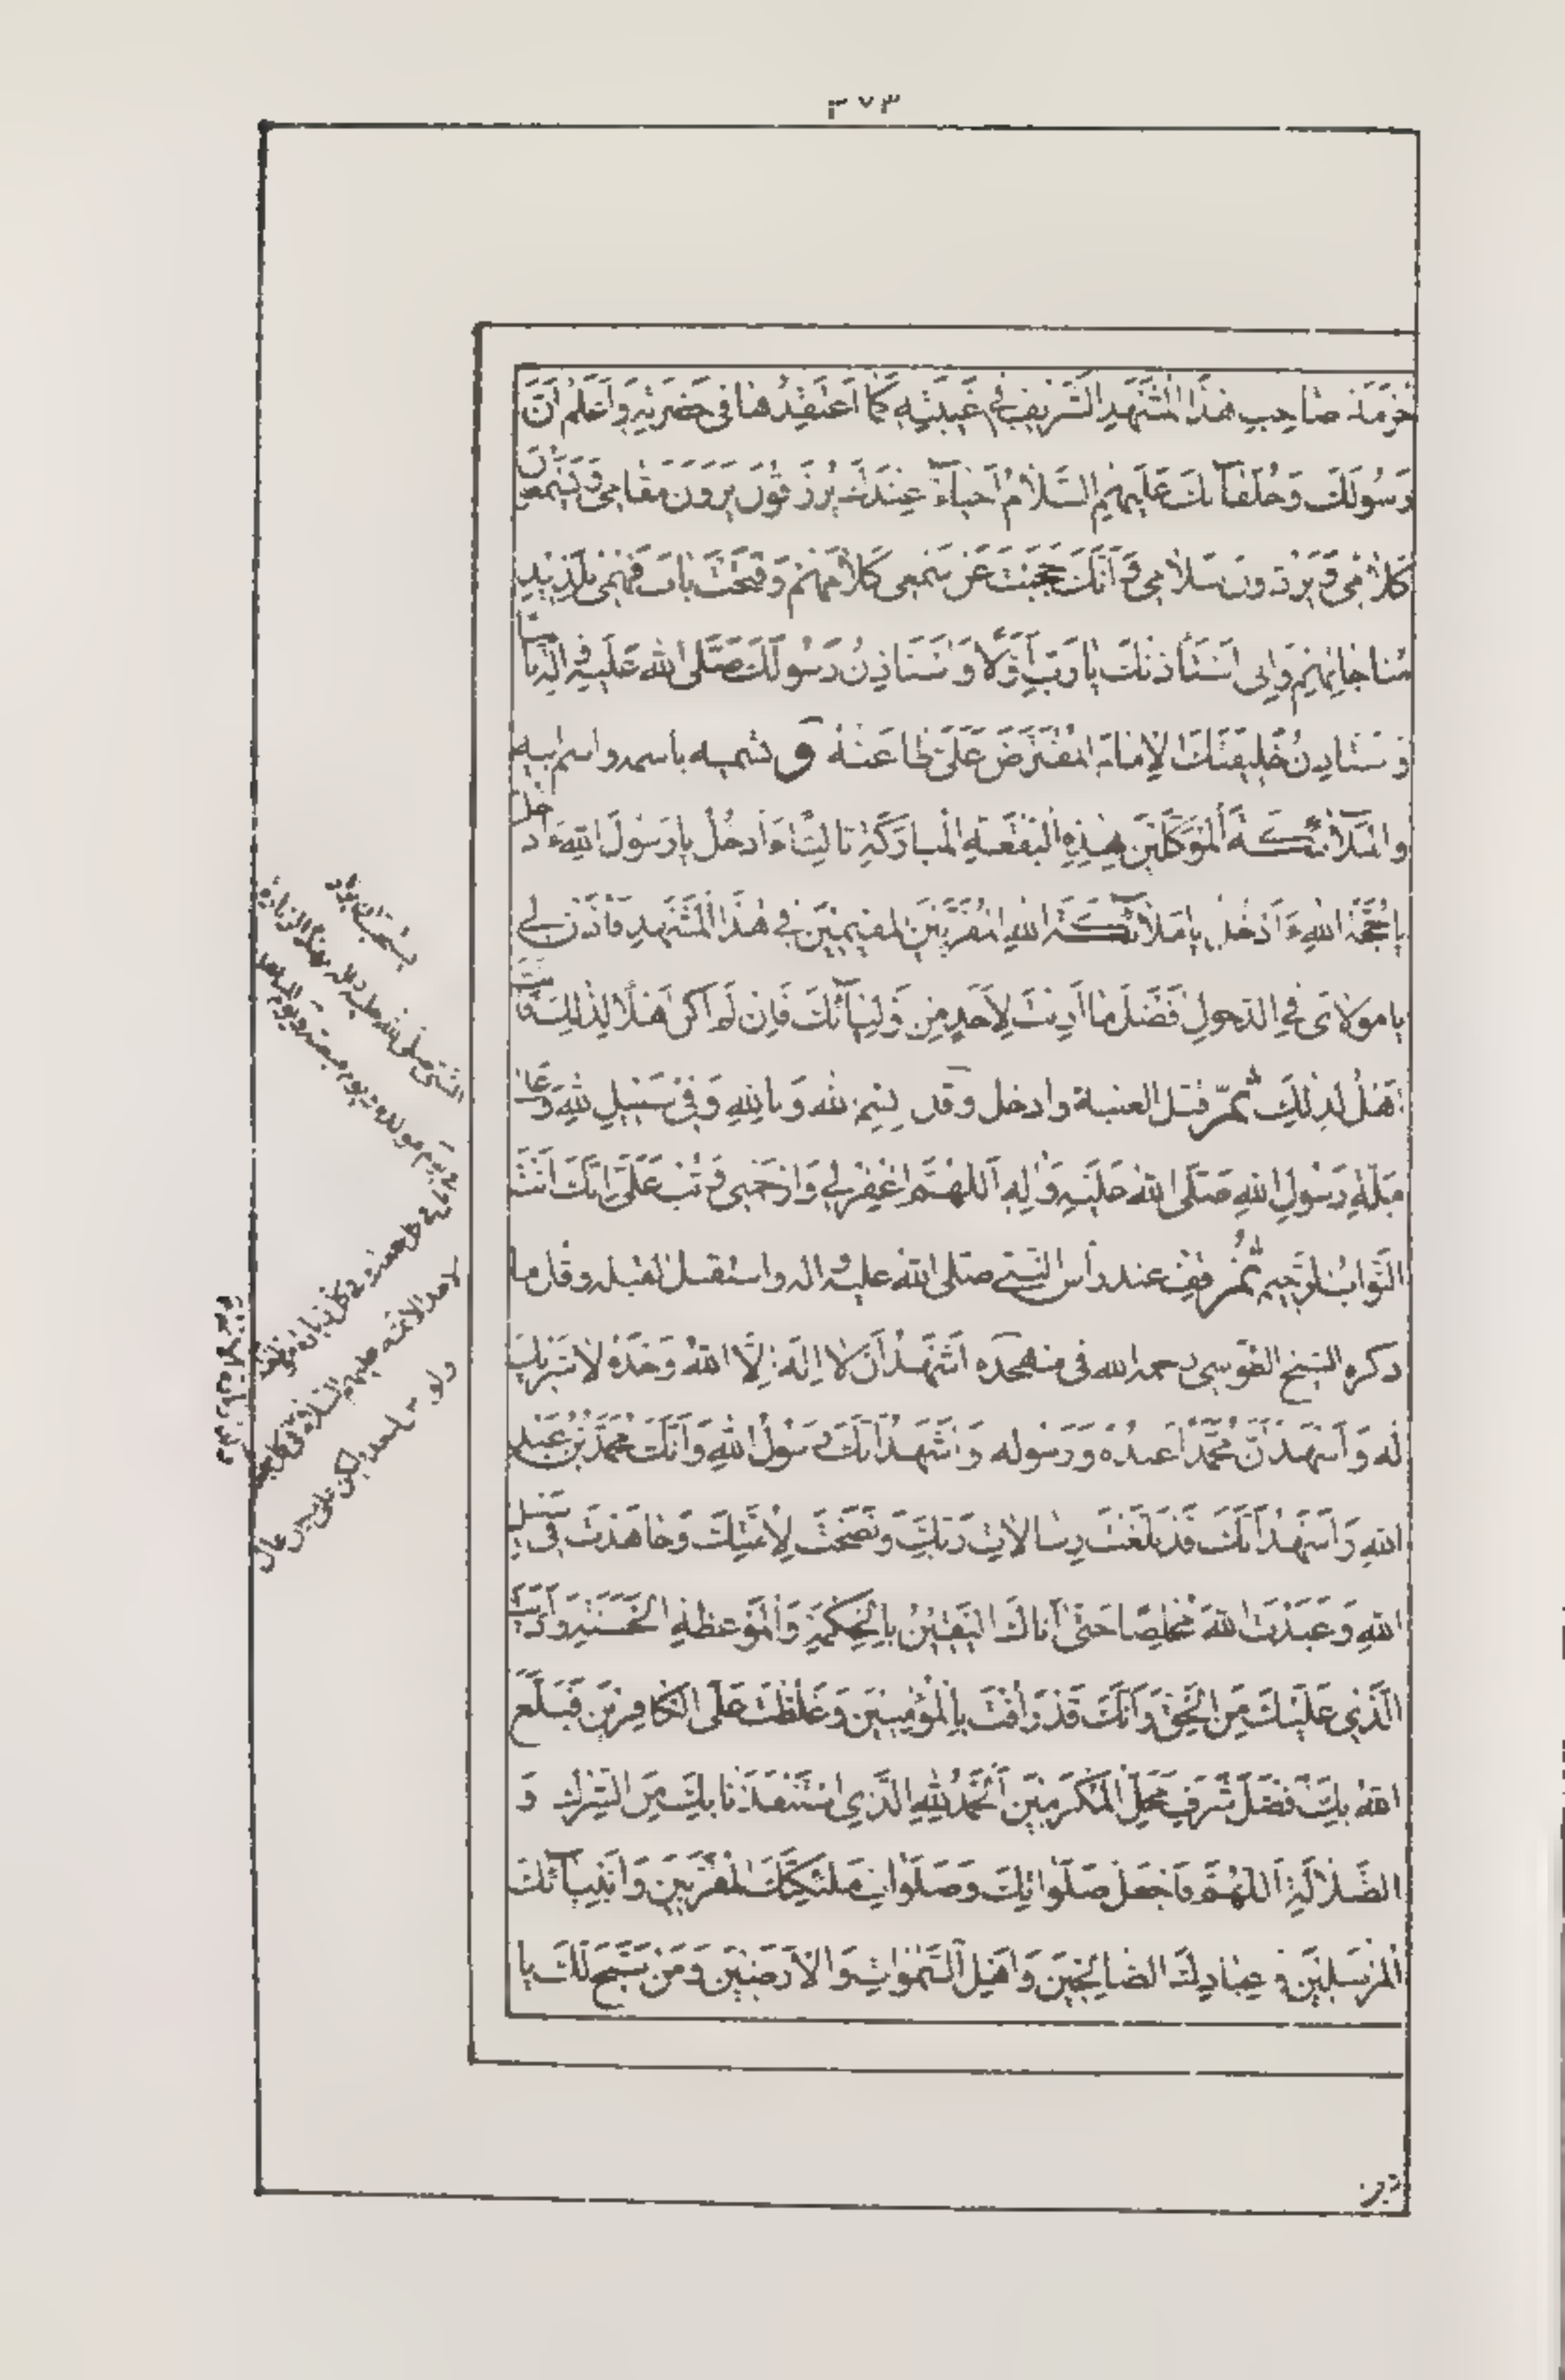 ٣٧٣
حُرْمَةَ صَاحِبِ هٰذَا الْمَشْهَدِ الشَّرِيفِ فِي غَيْبَتِهِ كَمَا اَعْتَقِدُهَا فِى حَضْرَتِهِ وَاَعْلَمُ اَنَّ
رَسُولَكَ وَخُلَفَآئَكَ عَلَيْهِمُ السَّلَامُ اَحْيَآءٌ عِنْدَكَ يُرْزَقُونَ يَرَوْنَ مَقَامِى وَيَسْمَعُونَ
كَلَامِى وَيَرُدُّونَ سَلَامِى وَاَنَّكَ حَجَبْتَ عَنْ سَمْعِى كَلَامَهُمْ وَفَتَحْتَ بَابَ فَهْمِى بِلَذِيذِ
مُنَاجَاتِهِمْ وَاِنِّى اَسْتَأْذِنُكَ يَا رَبِّ اَوَّلًا وَاَسْتَاْذِنُ رَسُولَكَ صَلَّى اللّٰهُ عَلَيْهِ وَالِهِ ثَانِيًا
وَاَسْتَاذِنُ خَلِيفَتَكَ الْاِمَامَ الْمُفْتَرَضَ عَلَىَّ طَاعَتُهُ و تسميه باسمه واسم ابيه
وَالْمَلَآئِكَةَ الْمُوَكَّلِينَ بِهٰذِهِ الْبُقْعَةِ الْمُبَارَكَةِ ثَالِثًا ءَاَدْخُلُ يَا رَسُولَ اللّٰهِ ءَاَدْخُلُ
يَا حُجَّةَ اللّٰهِ ءَاَدْخُلُ يَا مَلَآئِكَةَ اللّٰهِ الْمُقَرَّبِينَ الْمُقِيمِينَ فِي هٰذَا الْمَشْهَدِ فَاْذَنْ لِي
يَا مَوْلَاىَ فِي الدُّخُولِ اَفْضَلَ مَا اَذِنْتَ لِاَحَدٍ مِنْ اَوْلِيَآئِكَ فَاِنْ لَمْ اَكُنْ اَهْلًا لِذٰلِكَ فَاَنْتَ
اَهْلٌ لِذٰلِكَ ثمّ قبّل العتبة وادخل وقل بِسْمِ اللّٰهِ وَبِاللّٰهِ وَفِي سَبِيلِ اللّٰهِ وَعَلٰى
مِلَّةِ رَسُولِ اللّٰهِ صَلَّى اللّٰهُ عَلَيْهِ وَاٰلِهِ اَللّٰهُمَّ اغْفِرْ لِي وَارْحَمْنِى وَتُبْ عَلَىَّ اِنَّكَ اَنْتَ
التَّوَّابُ الرَّحِيمُ ثُمَّ قِف عند رأس النبي صلى الله عليه واله واستقبل القبله وقل ما
ذكره الشيخ الطوسى رحمه الله فى متهجده اَشْهَدُ اَنْ لَا اِلٰهَ اِلَّا اللّٰهُ وَحْدَهُ لَا شَرِيكَ
لَهُ وَاَشْهَدُ اَنَّ مُحَمَّدًا عَبْدُهُ وَرَسُولُه وَاَشْهَدُ اَنَّكَ رَسُولُ اللّٰهِ وَاَنَّكَ مُحَمَّدُ بْنُ عَبْدِ
اللّٰهِ وَاَشْهَدُ اَنَّكَ قَدْ بَلَّغْتَ رِسَالَاتِ رَبِّكَ وَنَصَحْتَ لِاُمَّتِكَ وَجَاهَدْتَ فِى سَبِيلِ
اللّٰهِ وَعَبَدْتَ اللّٰهَ مُخْلِصًا حَتّٰى اَتَاكَ الْيَقِينُ بِالْحِكْمَةِ وَالْمَوْعِظَةِ الْحَسَنَةِ وَاَدَّيْتَ
الَّذِى عَلَيْكَ مِنَ الْحَقِّ وَاَنَّكَ قَدْ رَؤُفْتَ بِالْمُؤْمِنِينَ وَغَلُظْتَ عَلَى الْكَافِرِينَ فَبَلَّغَ
اللّٰهُ بِكَ اَفْضَلَ شَرَفِ مَحَلِّ الْمُكَرَّمِينَ اَلْحَمْدُ لِلّٰهِ الَّذِى اسْتَنْقَذَنَا بِكَ مِنَ الشِّرْكِ وَ
الضَّلَالَةِ اَللّٰهُمَّ فَاجْعَلْ صَلَوَاتِكَ وَصَلَوَاتِ مَلٰئِكَتِكَ الْمُقَرَّبِينَ وَاَنْبِيَآئِكَ
الْمُرْسَلِينَ وَ عِبَادِكَ الصَّالِحِينَ وَاَهْلِ السَّمٰوَاتِ وَالْاَرَضِينَ وَمَنْ سَبَّحَ لَكَ يَا
يستحب ان يزار
النبى صلى الله عليه واله بهذه الزيارة
يوم مولده ويوم مبعثه ويوم